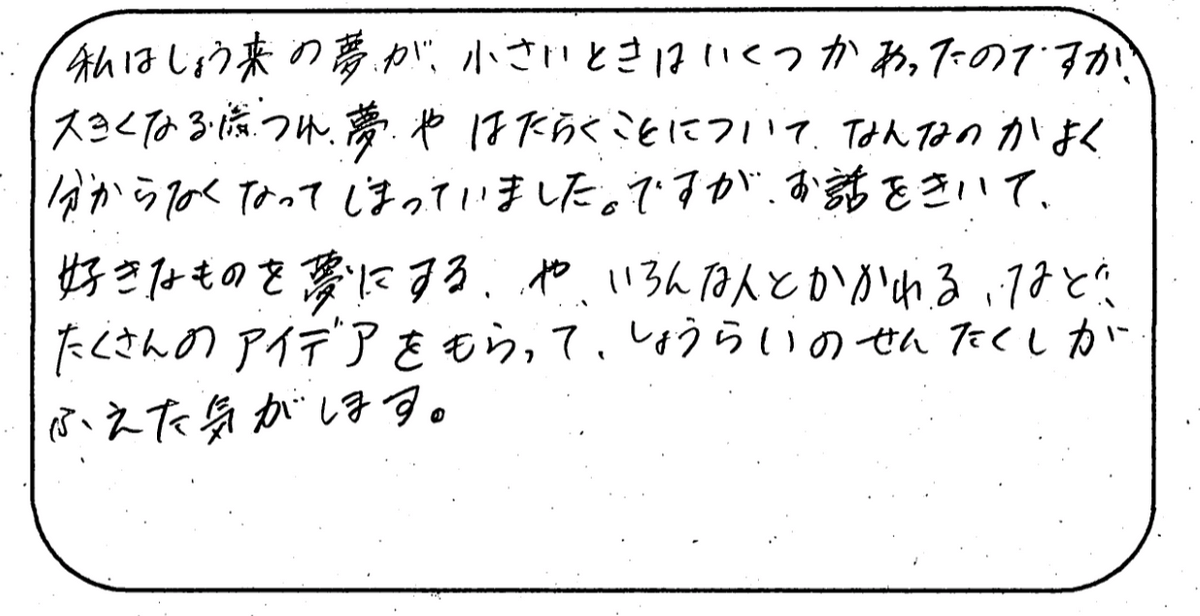 私はしょう来の夢が、小さいときはいくつかあったのですが、
大きくなる歳つれ、夢やはたらくことについて、なんなのかよく
分からなくなってしまっていました。ですが、お話をきいて、
好きなものを夢にする、や、いろんな人とかかわれる、など、
たくさんのアイデアをもらって、しょうらいのせんたくしが
ふえた気がします。